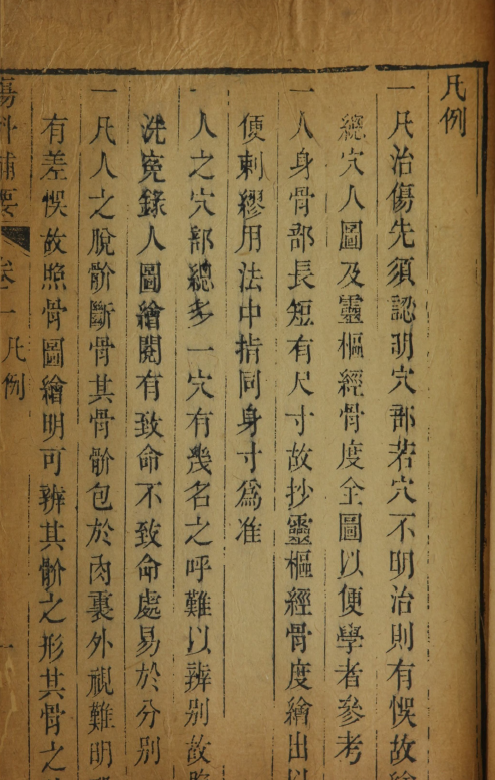 凡例
一凡治傷先須認明穴部若穴不明治則有悞故繪
總穴人圖及靈樞經骨度全圖以便學者參考
一人身骨部長短有尺寸故抄靈樞經骨度繪出以
便刺繆用法中指同身寸爲准
一人之穴部總多一穴有幾名之呼難以辨别故
洗寃錄人圖繪閱有致命不致命處易於分别
一凡人之脫骱斷骨其骨骱包於肉裏外視難明
有差悞故照骨圖繪明可辨其骱之形其骨之
傷科補要 卷一凡例 一